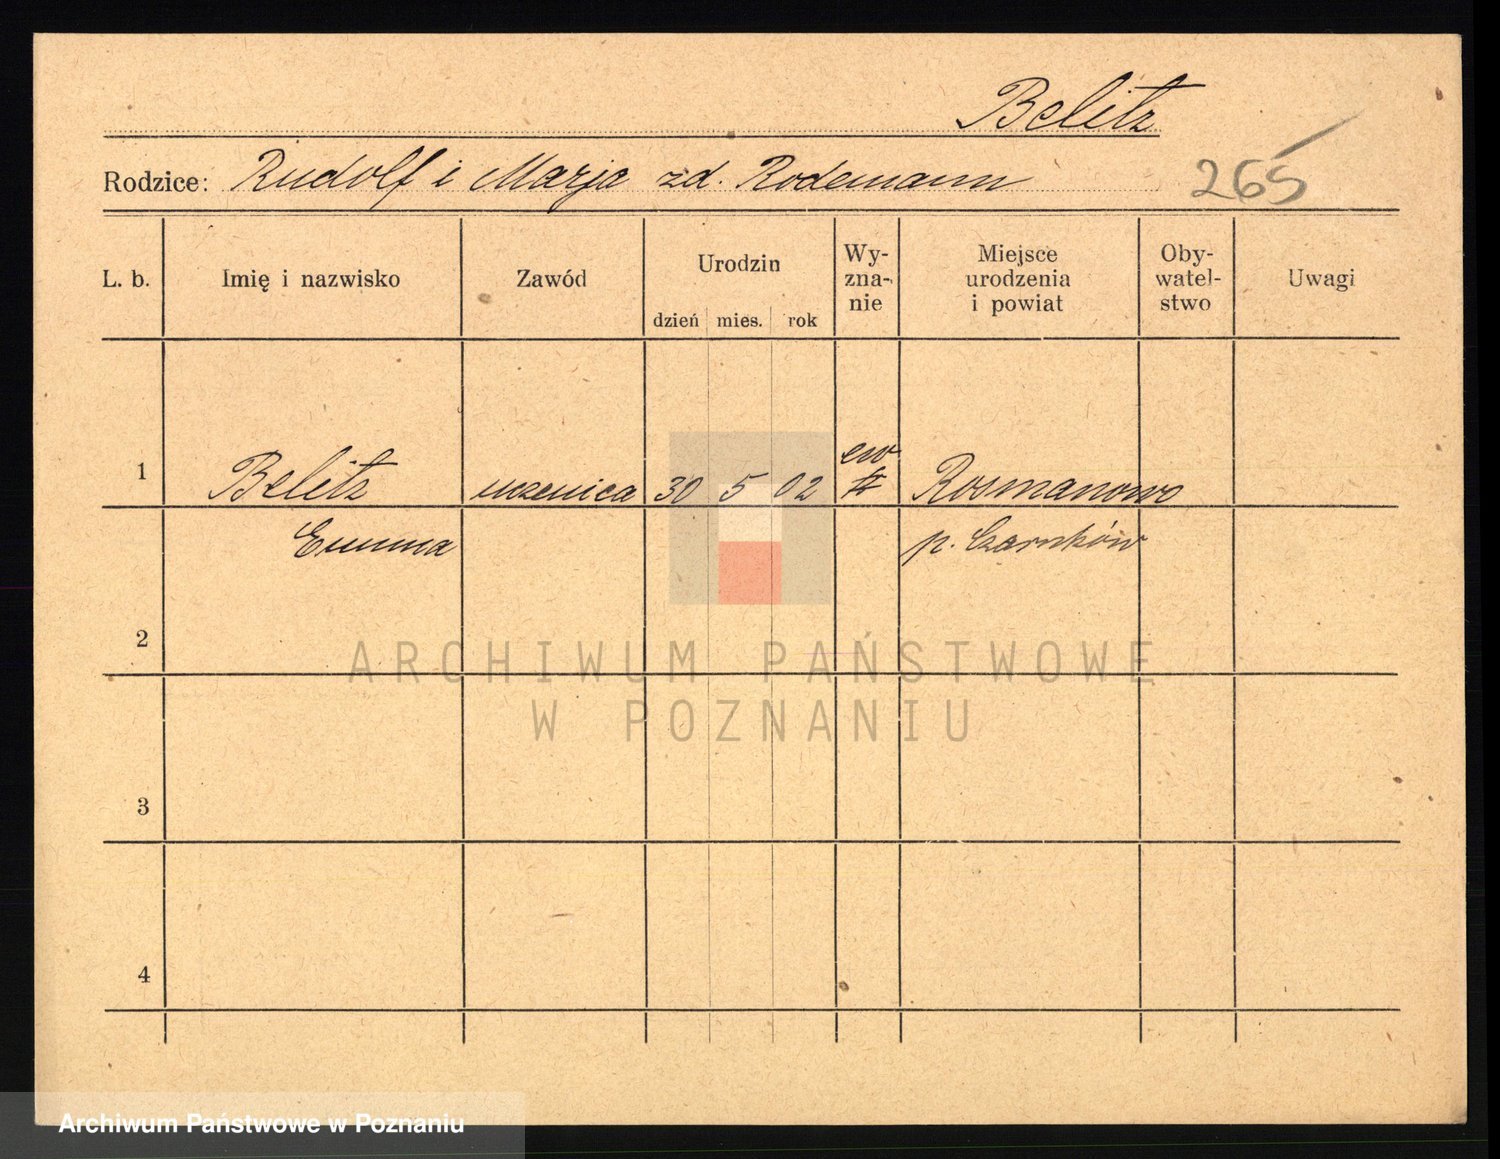 Belitz
Rodzice: Rudolf i Marja zd. Rodemann 265
L. b. Imię i nazwisko Zawód Urodzin dzień mies. rok Wy-zna-nie Miejsce urodzenia i powiat Oby-watel-stwo Uwagi
ew
1 Belitz uczenica 30 5 02 Rosmanowo
Emma p. Czarnków
2
ARCHIWUM PAŃSTWOWE
W POZNANIU
3
4
Archiwum Państwowe w Poznaniu